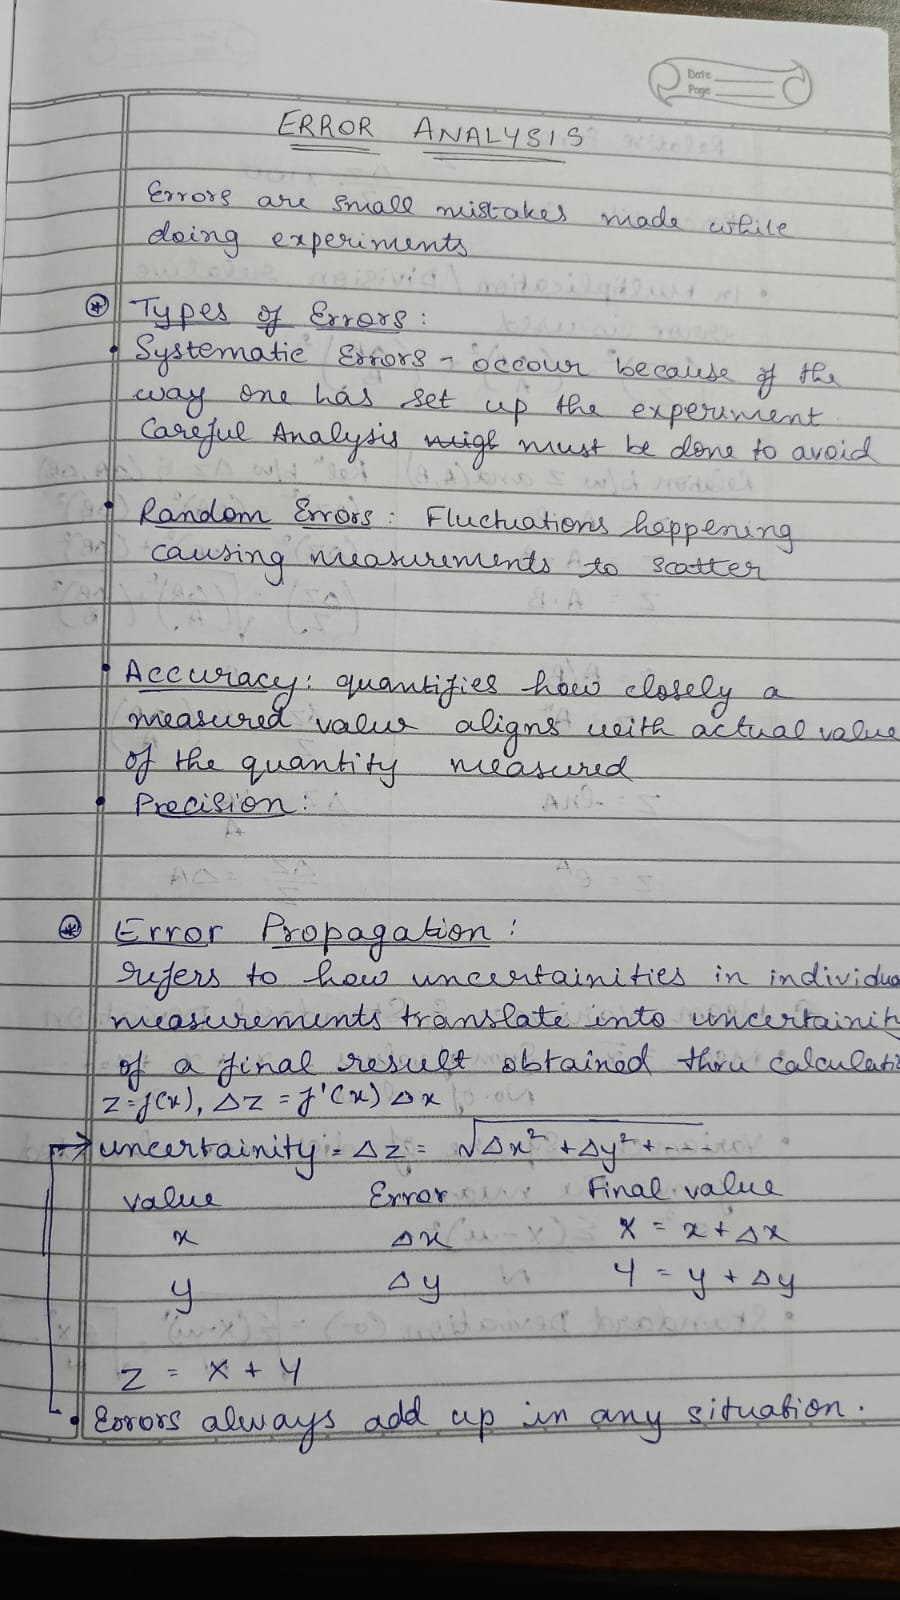 Date
Page
ERROR ANALYSIS
Errors are small mistakes made while
doing experiments
Types of Errors:
• Systematic Errors - occour because of the
way one has set up the experiment.
Careful Analysis migh must be done to avoid
• Random Errors: Fluctuations happening
causing measurements to scatter
• Accuracy: quantifies how closely a
measured value aligns with actual value
of the quantity measured
• Precision:
Error Propagation:
refers to how uncertainities in individua
measurements translate into uncertainit
of a final result obtained thru calculati
z=f(x), Δz = f'(x) Δx
→ uncertainity = Δz = √Δx² + Δy² + ----
value Error Final value
x Δx X = x + Δx
y Δy Y = y + Δy
z = X + Y
• Errors always add up in any situation.